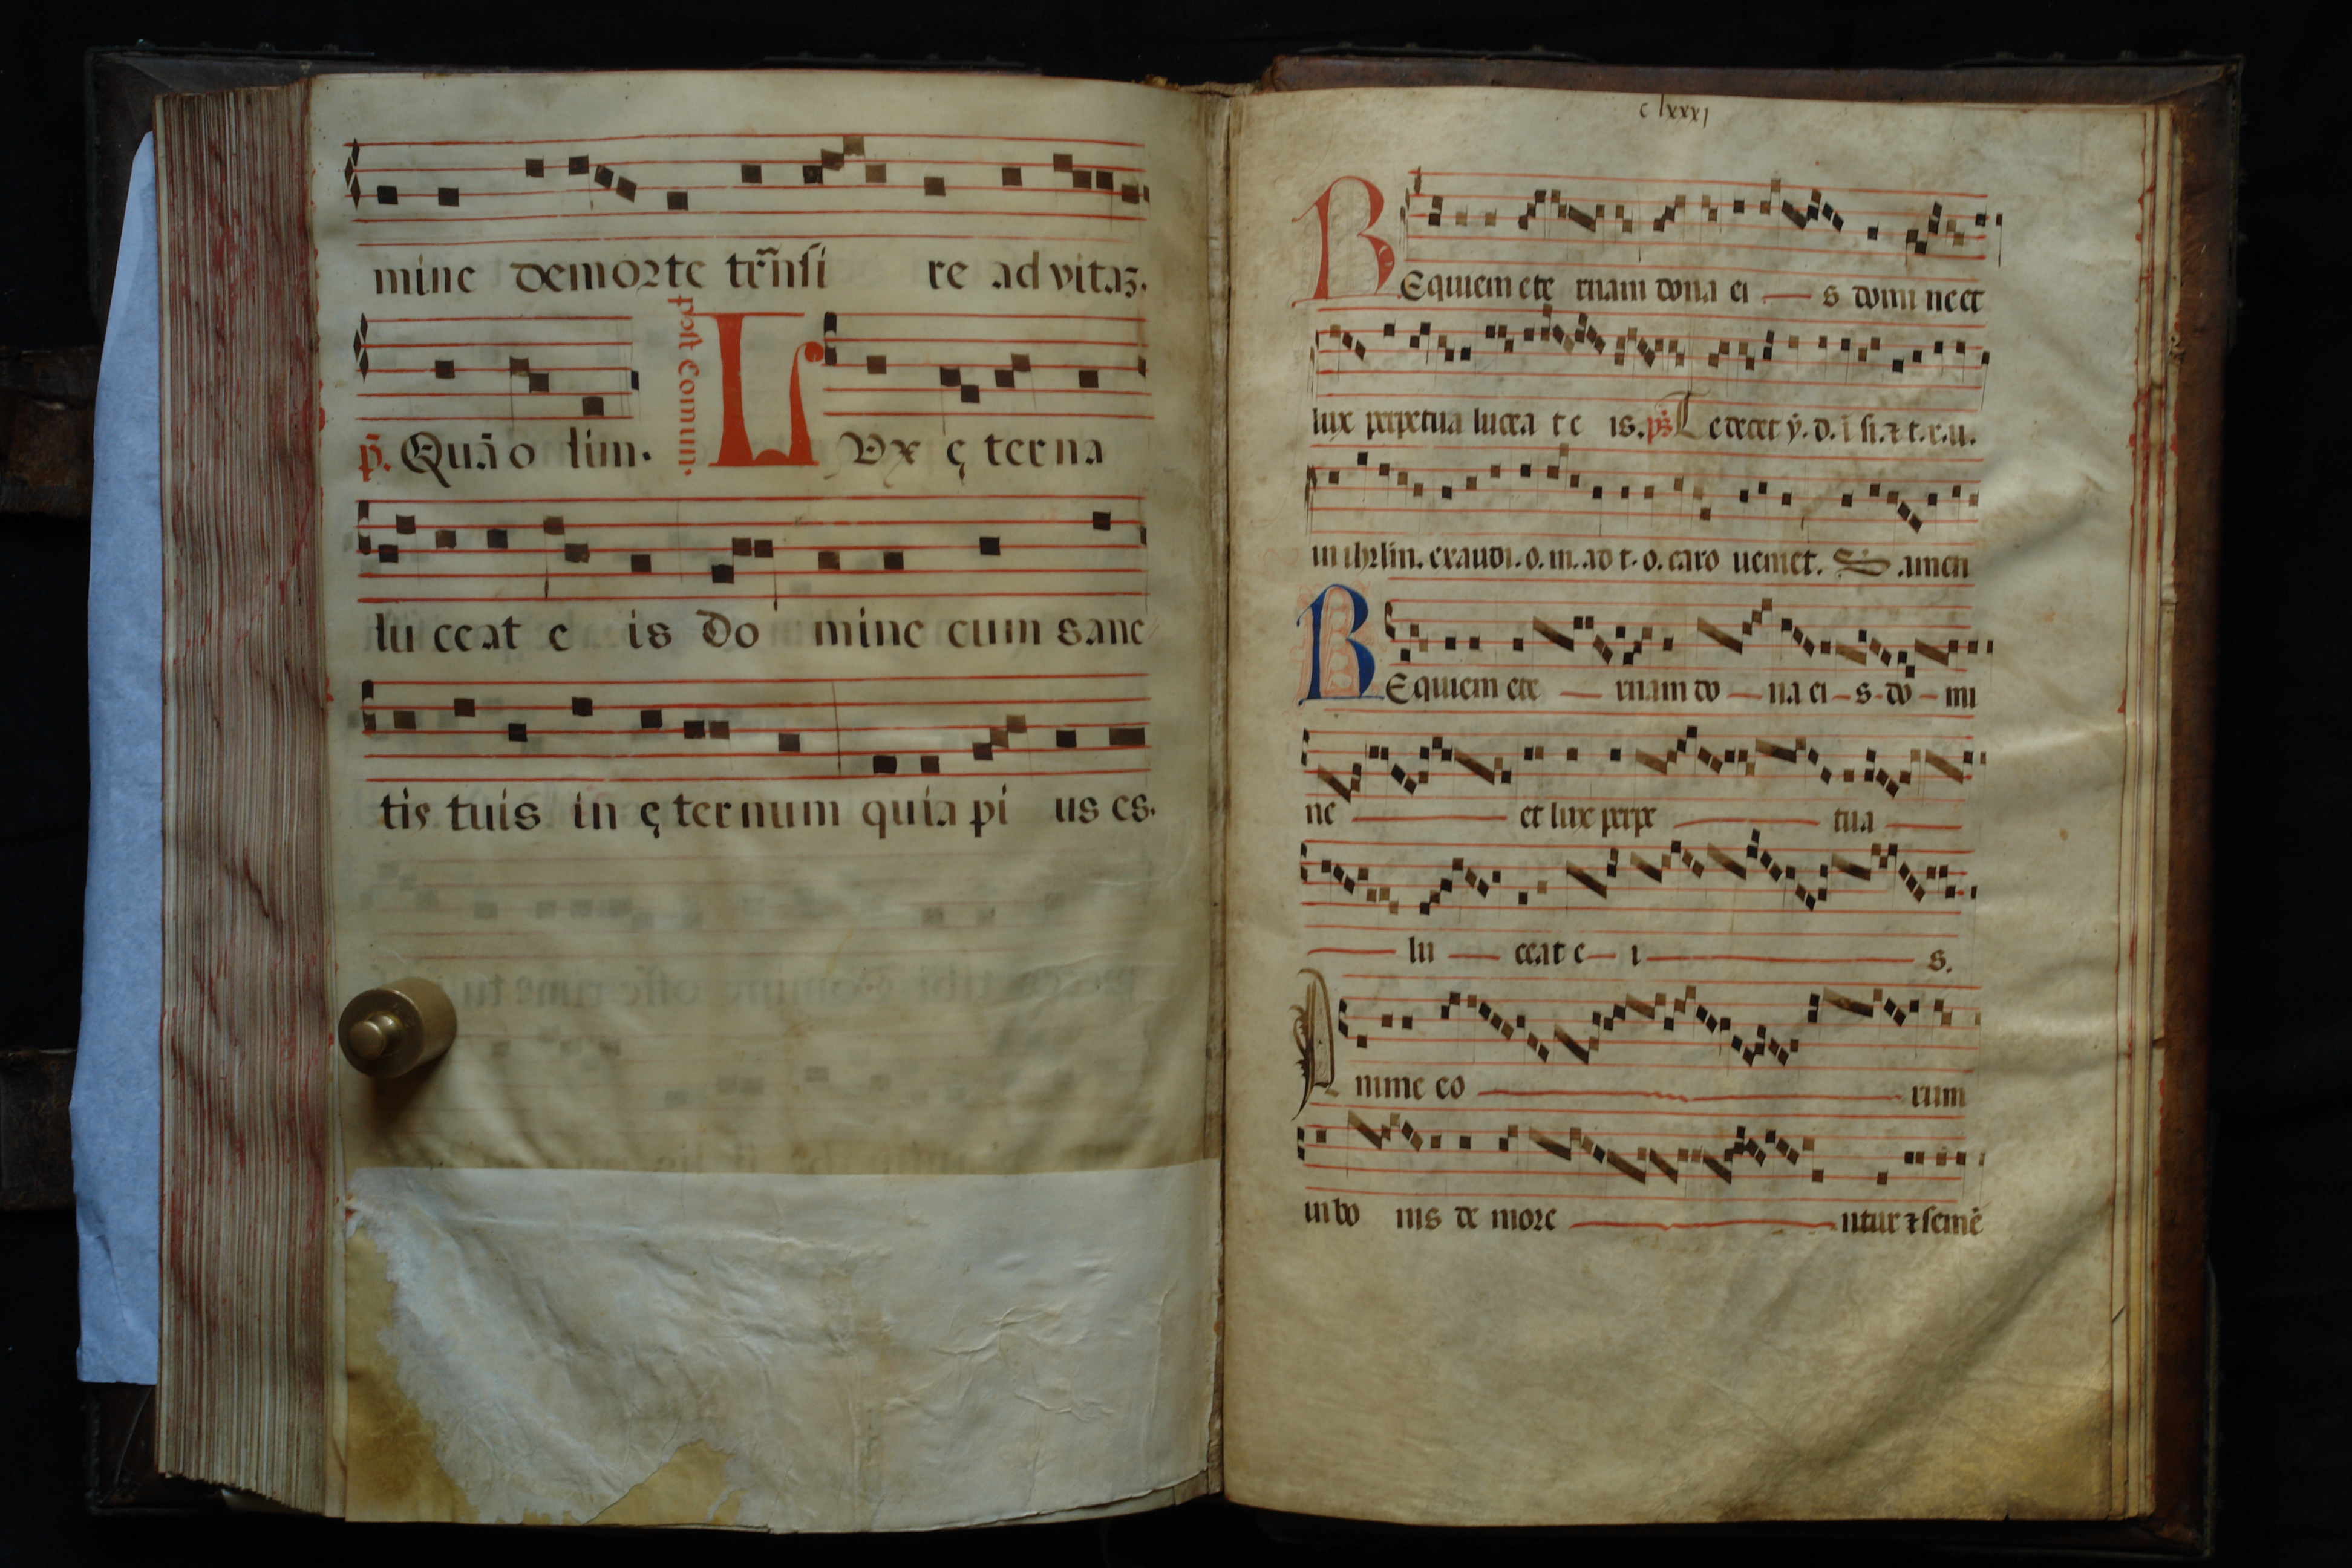 mine de morte trñsi re ad vitaz.
p̃. Quã o lim.
post Comun.
LVx ę terna
lu ceat e is Do mine cum sanc
tis tuis in ę ternum quia pi us es.
clxxxj
REquiem ete rnam dona ei s domi ne et
lux perpetua lucea t e is. ps̃ Te decet ẏ. d. ĩ si. ⁊ t. r. u.
in ihrlm. exaudi. o. m. ad t. o. caro ueniet. amen
REquiem ete rnam do na ei s. do mi
ne et lux perpe tua
lu ceat e i s.
Anime eo rum
in bo nis de more ntur ⁊ semẽ